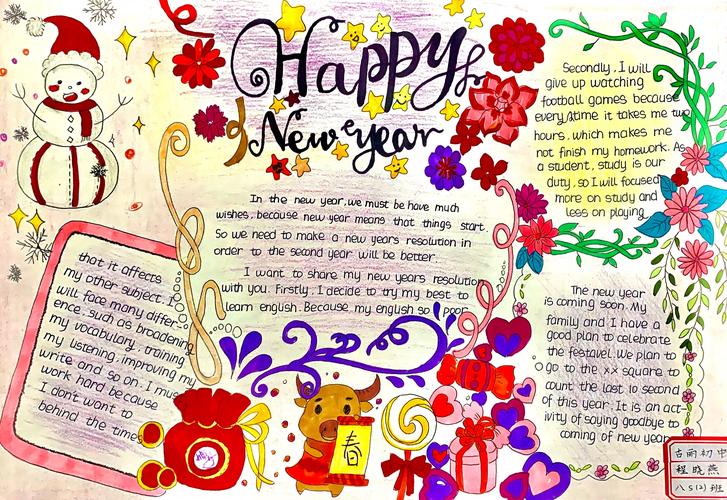 Happy
New year
In the new year, we must be have much
wishes, because new year means that things start.
So we need to make a new years resolution in
order to the second year will be better.
I want to share my new years resolution
with you. Firstly, I decide to try my best to
learn english. Because my english so poor
that it affects
my other subject. I
will face many differ-
ence, such as broadening
my vocabulary, training
my listening, improving my
write and so on. I must
work hard because
I don't want to
behind the times
Secondly, I will
give up watching
football games because
every time it takes me two
hours, which makes me
not finish my homework. As
a student, study is our
duty, so I will focused
more on study and
less on playing.
The new year
is coming soon. My
family and I have a
good plan to celebrate
the festavel. We plan to
go to the xx square to
count the last 10 second
of this year. It is an act-
ivity of saying goodbye to
coming of new year
春
古雨初中
程晓燕
八S(2)班